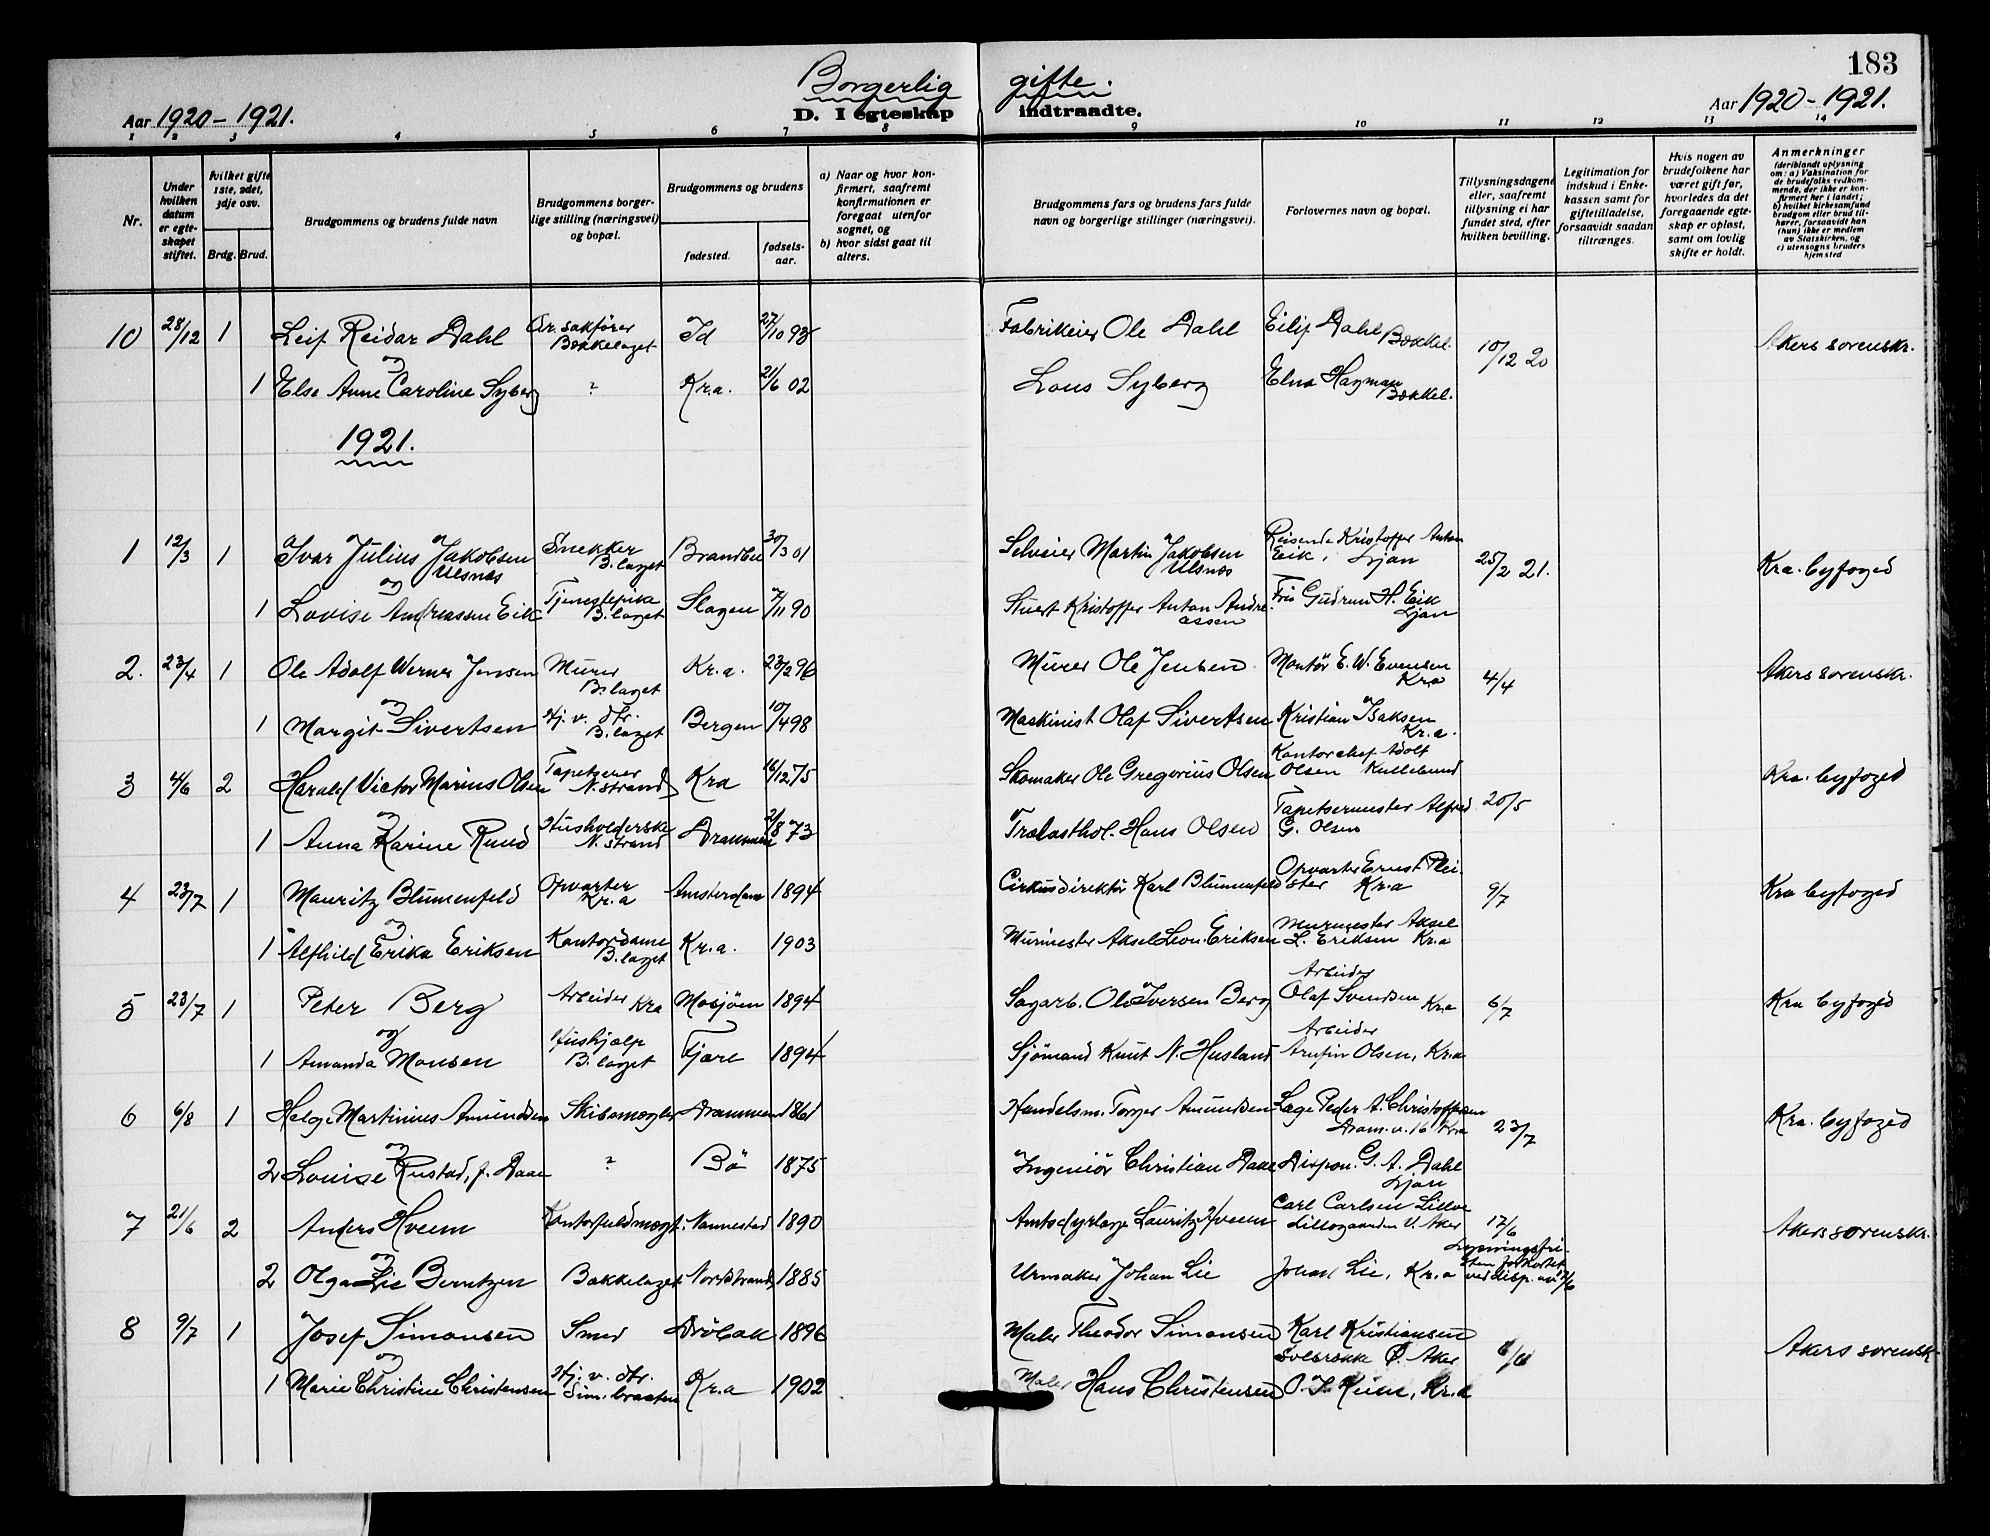 183
Borgerlig gifte.
Aar 1920-1921. D. I egteskap indtraadte. Aar 1920-1921.
1 2 3 4 5 6 7 8 9 10 11 12 13 14
Nr.
Under hvilken datum er egteskapet stiftet.
hvilket gifte 1ste, 2det, 3dje osv.
Brdg. Brud.
Brudgommens og brudens fulde navn
Brudgommens borgerlige stilling (næringsvei) og bopæl.
Brudgommens og brudens
fødested.
fødselsaar.
a) Naar og hvor konfirmert, saafremt konfirmutionen er foregaat utenfor sognet, og
b) hvor sidst gaat til alters.
Brudgommens fars og brudens fars fulde navn og borgerlige stillinger (næringsvei).
Forlovernes navn og bopæl.
Tillysningsdagene eller, saafremt tillysning ei har fundet sted, efter hvilken bevilling.
Legitimation for indskud i Enkekassen samt for giftetilladelse, forsaavidt saadan tiltrænges.
Hvis nogen av brudefolkene har været gift før, hvorledes da det foregaaende egteskap er opløst, samt om lovlig skifte er holdt.
Anmerkninger
(deriblandt oplysning om: a) Vaksination for de brudefolks vedkommende, der ikke er konfirmert her i landet; b) hvilket kirkesamfund brudgom eller brud tilhører, forsaavidt han (hun) ikke er medlem av Statskirken, og c) utensogns bruders hjemsted
10 28/12 1 Leif Reidar Dahl Or. sakfører Bækkelaget Id 27/10 93 Fabrikeier Ole Dahl Eilif Dahl Bækkel. 10/12 20 Akers sorenskr.
og
1 Else Anne Caroline Syberg ? Kr.a. 21/6 02 Lous Syberg Elna Hagman Bækkel.
1921.
1 12/3 1 Ivar Julius Jakobsen Ulsnæs Snekker B.laget Brandbu 30/3 01 Selveier Martin Jakobsen Ulsnæs Reisende Kristoffer Anton Eik, Ljan 25/2 21. Kra. byfoged
og
1 Lovise Andreassen Eik Tjenestepike B.laget Slagen 7/11 90 Stuert Kristoffer Anton Andreassen Frø Gudrun H. Eik Ljan
2. 23/4 1 Ole Adolf Werner Jensen Murer B.laget Kr.a. 23/2 96 Murer Ole Jensen Montør E. W. Evensen Kra 4/4 Akers sorenskr.
og
1 Margit Sivertsen Hj. v. dtr. B.laget Bergen 10/4 98 Maskinist Olaf Sivertsen Kristian Isaksen Kr.a.
3 4/6 2 Harald Victor Marius Olsen Tapetserer N.strand Kra 16/12 75 Skomaker Ole Gregorius Olsen Kontorchef Adolf Olsen Kullebund 20/5 Kra. byfoged
og
1 Anna Karine Ruud Husholderske N.strand Drammen 2/8 73 Trælasthdl. Hans Olsen Tapetsermester Alfred G. Olsen
4 23/7 1 Mauritz Blumenfeld Opvarter Kr.a Amsterdam 1894 Cirkusdirektør Karl Blumenfeld Opvarter Ernest Pleister Kr.a 9/7 Kra byfoged
og
1 Alfhild Erika Eriksen Kontordame B.laget Kr.a. 1903 Murmester Aksel Leon. Eriksen Murmester Aksel L. Eriksen Kr.a
5 23/7 1 Peter Berg Arbeider Kra Mosjøen 1894 Sagarb. Ole Iversen Berg Arbeider Olaf Svendsen Kr.a 6/7 Kra byfoged
og
1 Amanda Monsen Hushjælp B.laget Fjære 1894 Sjømand Knut N. Husland Arbeider Arnfin Olsen, Kr.a
6 6/8 1 Helge Martinius Amundsen Skibsmægler Drammen 1861 Handelsm. Torger Amundsen Læge Peder A. Christoffersen Dram.v. 16 Kra 23/7 Kra. byfoged
og
2 Louise Rustad, f. Daae ? Bö 1875 Ingeniör Christian Daae Dispon. G. A. Dahl Ljan
7 21/6 2 Anders Hveem Kontorfuldmægt. Nannestad 1890 Amtsdyrlæge Lauritz Hveem Carl Carlsen Lilloe Lillogaarden V. Aker 17/6 Akers sorenskr.
og
2 Olga Lie Berntzen Bækkelaget Nordstrand 1885 Urmaker Johan Lie Johan Lie, Kr.a Lysningsfristen forkortet ved disp. av 17/6
8 9/7 1 Josef Simonsen Smed Drøbak 1896 Maler Theodor Simonsen Karl Kristiansen Solbakke Ø. Aker 6/6 Akers sorensk.
og
1 Marie Christine Christensen Hj. v. dtr. Sim.braaten Kr.a 1902. Maler Hans Christensen O. J. Ruud, Kr.a